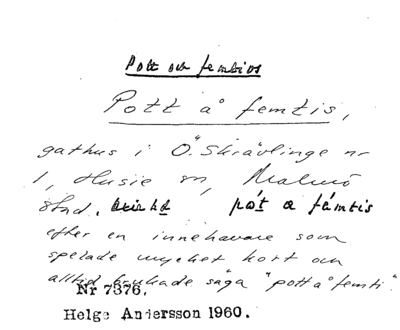 Pott och femtios
Pott å femtis,
gathus i Ö. Skrävlinge nr
1, Husie sn, Malmö
stad. pot a fämtis
efter en innehavare som
spelade mycket kort och
alltid brukade säga "pott å femti".
Nr 7376.
Helge Andersson 1960.